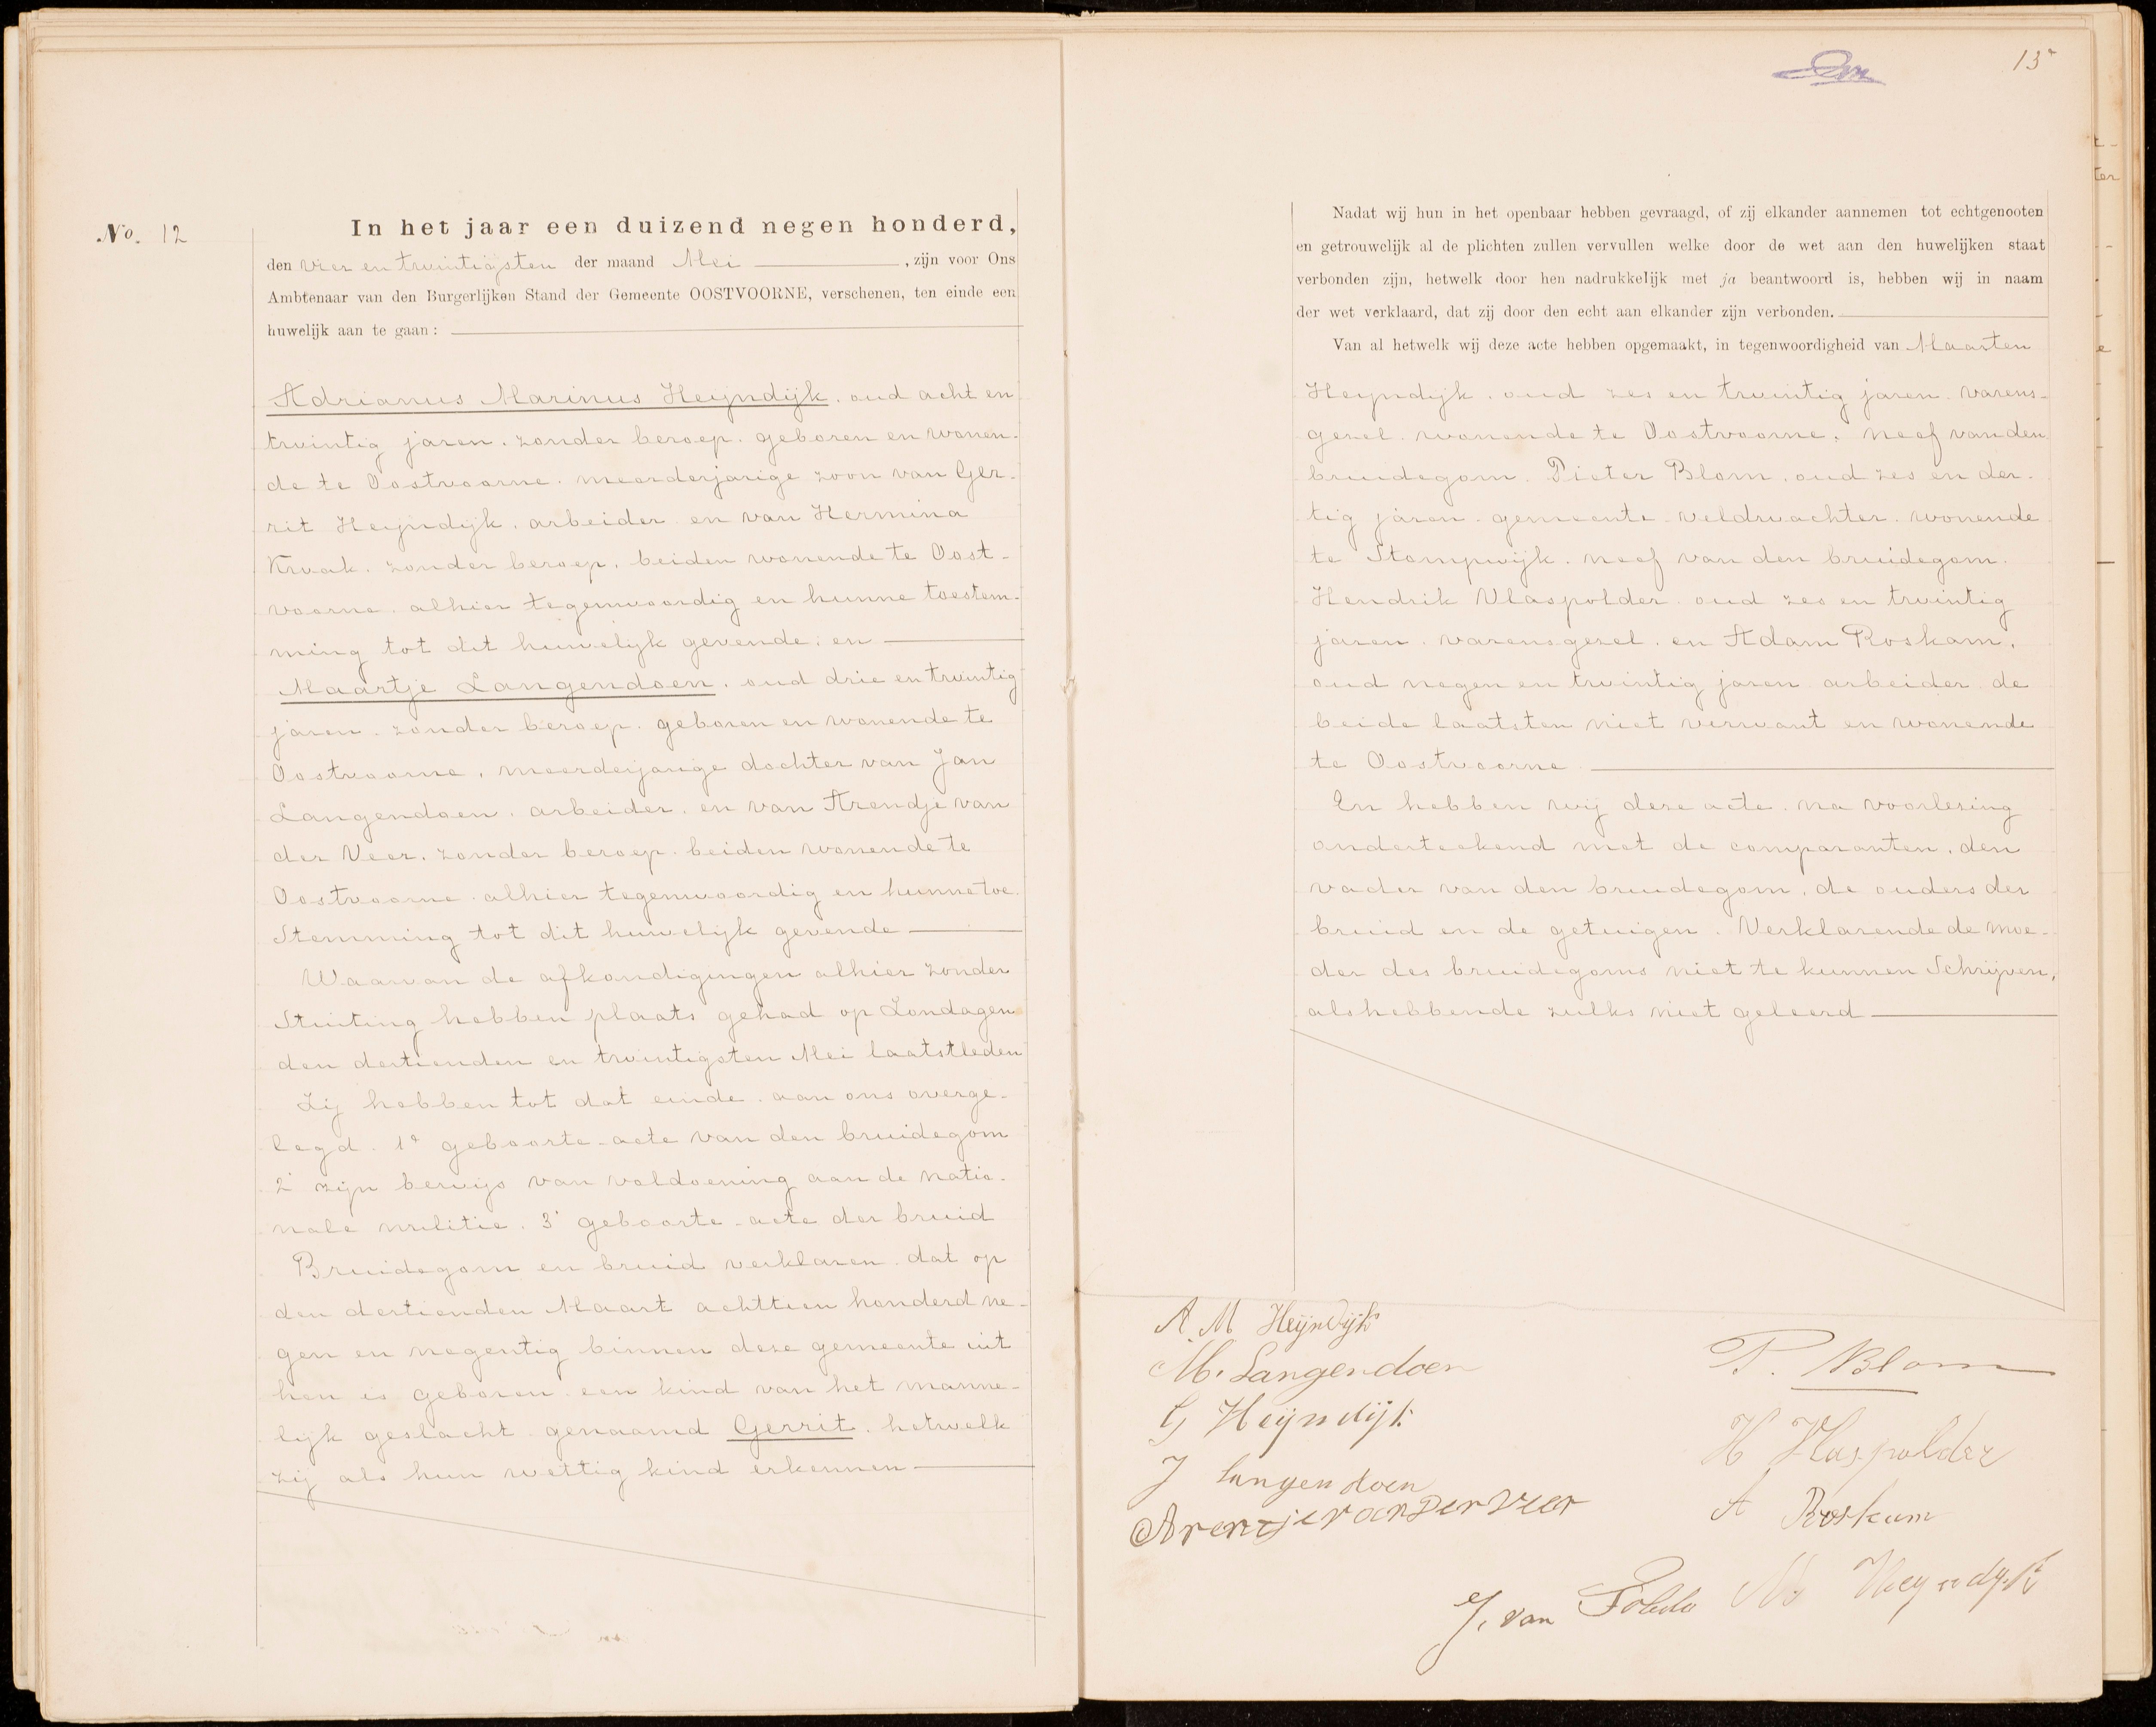 No. 12
In het jaar een duizend negen honderd,
den vier en twintigsten der maand Mei, zijn voor Ons
Ambtenaar van den Burgerlijken Stand der Gemeente OOSTVOORNE, verschenen, ten einde een
huwelijk aan te gaan:
Adrianus Marinus Heijndijk, oud acht en
twintig jaren, zonder beroep, geboren en wonen-
de te Oostvoorne, meerderjarige zoon van Ger-
rit Heijndijk, arbeider en van Hermina
Kraak, zonder beroep, beiden wonende te Oost-
voorne, alhier tegenwoordig en hunne toestem-
ming tot dit huwelijk gevende; en
Maartje Langendoen, oud drie en twintig
jaren, zonder beroep, geboren en wonende te
Oostvoorne, meerderjarige dochter van Jan
Langendoen, arbeider, en van Arendje van
der Veer, zonder beroep, beiden wonende te
Oostvoorne alhier tegenwoordig en hunne toe-
stemming tot dit huwelijk gevende
Waarvan de afkondigingen alhier zonder
stuiting hebben plaats gehad op Zondagen
den dertienden en twintigsten Mei laatstleden
Zij hebben tot dat einde aan ons overge-
legd. 1° geboorte-acte van den bruidegom
2° zijn bewijs van voldoening aan de natio-
nale militie. 3° geboorte-acte der bruid
Bruidegom en bruid verklaren dat op
den dertienden Maart achttien honderd ne-
gen en negentig binnen deze gemeente uit
hen is geboren een kind van het manne-
lijk geslacht genaamd Gerrit, hetwelk
zij als hun wettig kind erkennen
13
Nadat wij hun in het openbaar hebben gevraagd, of zij elkander aannemen tot echtgenooten
en getrouwelijk al de plichten zullen vervullen welke door de wet aan den huwelijken staat
verbonden zijn, hetwelk door hen nadrukkelijk met ja beantwoord is, hebben wij in naam
der wet verklaard, dat zij door den echt aan elkander zijn verbonden.
Van al hetwelk wij deze acte hebben opgemaakt, in tegenwoordigheid van Maarten
Heijndijk, oud zes en twintig jaren, varens-
gezel, wonende te Oostvoorne, neef van den
bruidegom, Pieter Blom, oud zes en der-
tig jaren, gemeente veldwachter, wonende
te Stompwijk, neef van den bruidegom.
Hendrik Vlaspolder oud zes en twintig
jaren, varensgezel, en Adam Roskam,
oud negen en twintig jaren arbeider de
beide laatsten niet verwant en wonende
te Oostvoorne
En hebben wij deze acte, na voorlezing
onderteekend met de comparanten, den
vader van den bruidegom, de ouders der
bruid en de getuigen. Verklarende de moe-
der des bruidegoms niet te kunnen schrijven,
als hebbende zulks niet geleerd
A. M. Heijndijk
M. Langendoen
G Heijndijk
J Langendoen
Arentje van Der Veer
P. Blom
H Vlaspolder
A Roskam
M Heyndijk
J. van